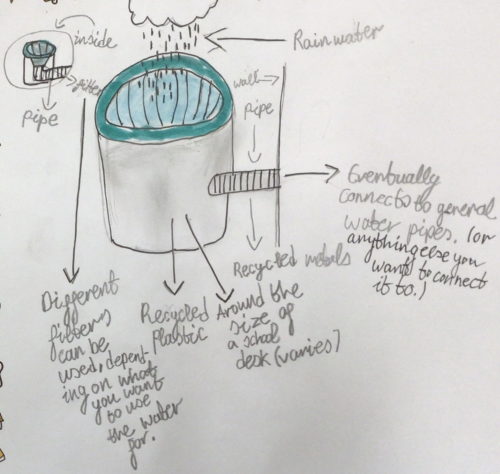 inside
filter
pipe
Rainwater
wall
pipe
Eventually
connects to general
water pipes. (or
anything else you
want to connect
it to.)
Recycled metals
Different
filters
can be
used, depend-
ing on what
you want
to use
the water
for.
Recycled
plastic
Around the
size of
a school
desk (varies)